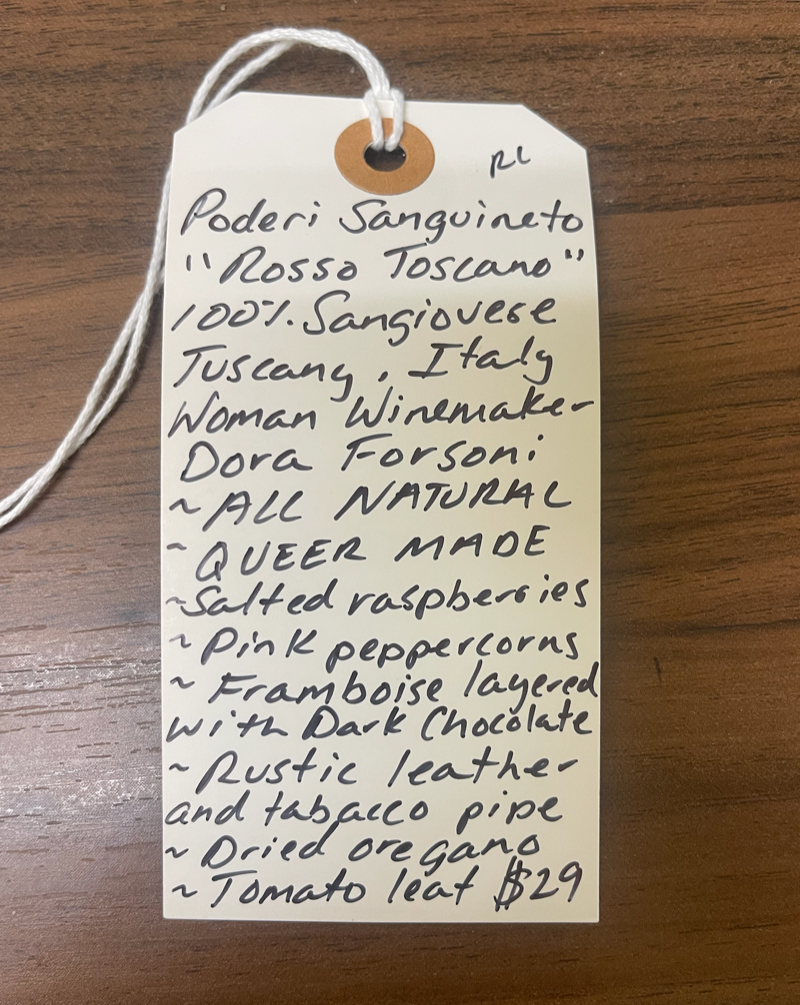 RL
Poderi Sanguineto
"Rosso Toscano"
100% Sangiovese
Tuscany, Italy
Woman Winemaker
Dora Forsoni
~ALL NATURAL
~QUEER MADE
~Salted raspberries
~Pink peppercorns
~Framboise layered
with Dark Chocolate
~Rustic leather
and tabacco pipe
~Dried oregano
~Tomato leaf $29